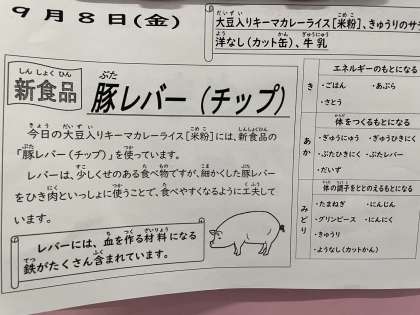 9月8日(金)
大豆入りキーマカレーライス[米粉]、きゅうりのサ
洋なし(カット缶)、牛乳
新食品
豚レバー(チップ)
今日の大豆入りキーマカレーライス[米粉]には、新食品の
「豚レバー(チップ)」を使っています。
レバーは、少しくせのある食べ物ですが、細かくした豚レバー
をひき肉といっしょに使うことで、食べやすくなるように工夫して
います。
レバーには、血を作る材料になる
鉄がたくさん含まれています。
き
エネルギーのもとになる
・ごはん ・あぶら
・さとう
あか
体をつくるもとになる
・ぎゅうにゅう ・ぎゅうひきにく
・ぶたひきにく ・ぶたレバー
・だいず
みどり
体の調子をととのえるもとになる
・たまねぎ ・にんじん
・グリンピース ・にんにく
・きゅうり
・ようなし(カットかん)